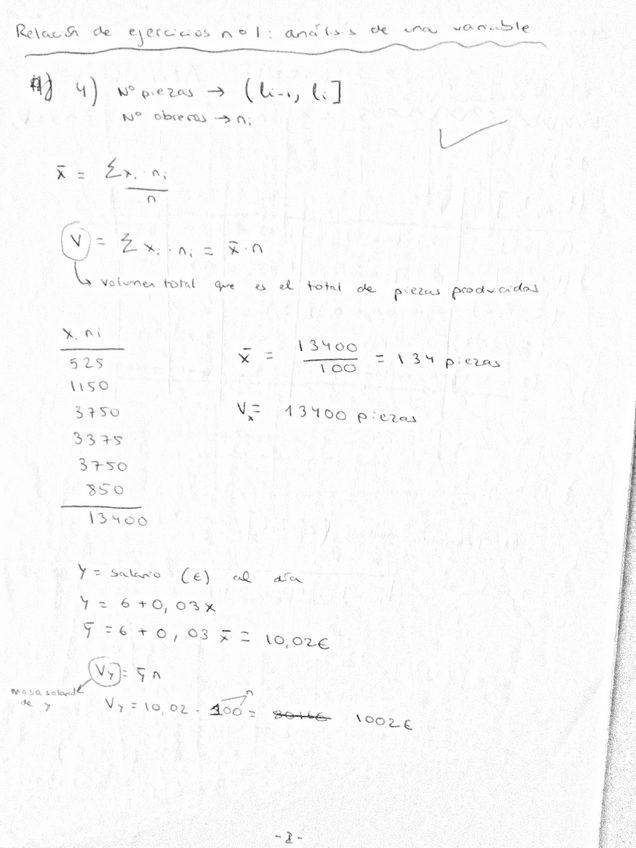 Relación de ejercicios nº1: análisis de una variable
4) Nº piezas → (li-1, li]
Nº obreros → ni
x̄ = Σxi · ni / n
V = Σ xi · ni = x̄ · n
volumen total que es el total de piezas producidas
x. ni
525
1150
3750
3375
3750
850
13400
x̄ = 13400 / 100 = 134 piezas
Vx = 13400 piezas
Y = salario (€) al día
Y = 6 + 0,03x
ȳ = 6 + 0,03 x̄ = 10,02€
Vy = ȳ n
masa salarial de y
n
Vy = 10,02 · 100 = 1002€